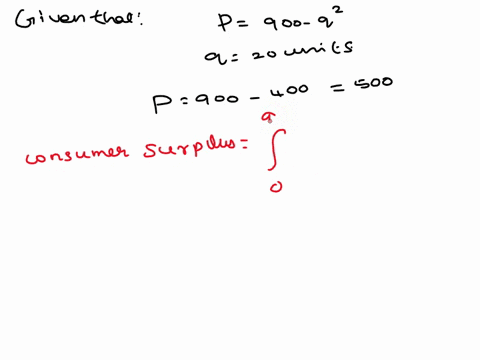 Given that: P = 900 - q²
q = 20 units
P = 900 - 400 = 500
consumer surplus = ∫₀^q